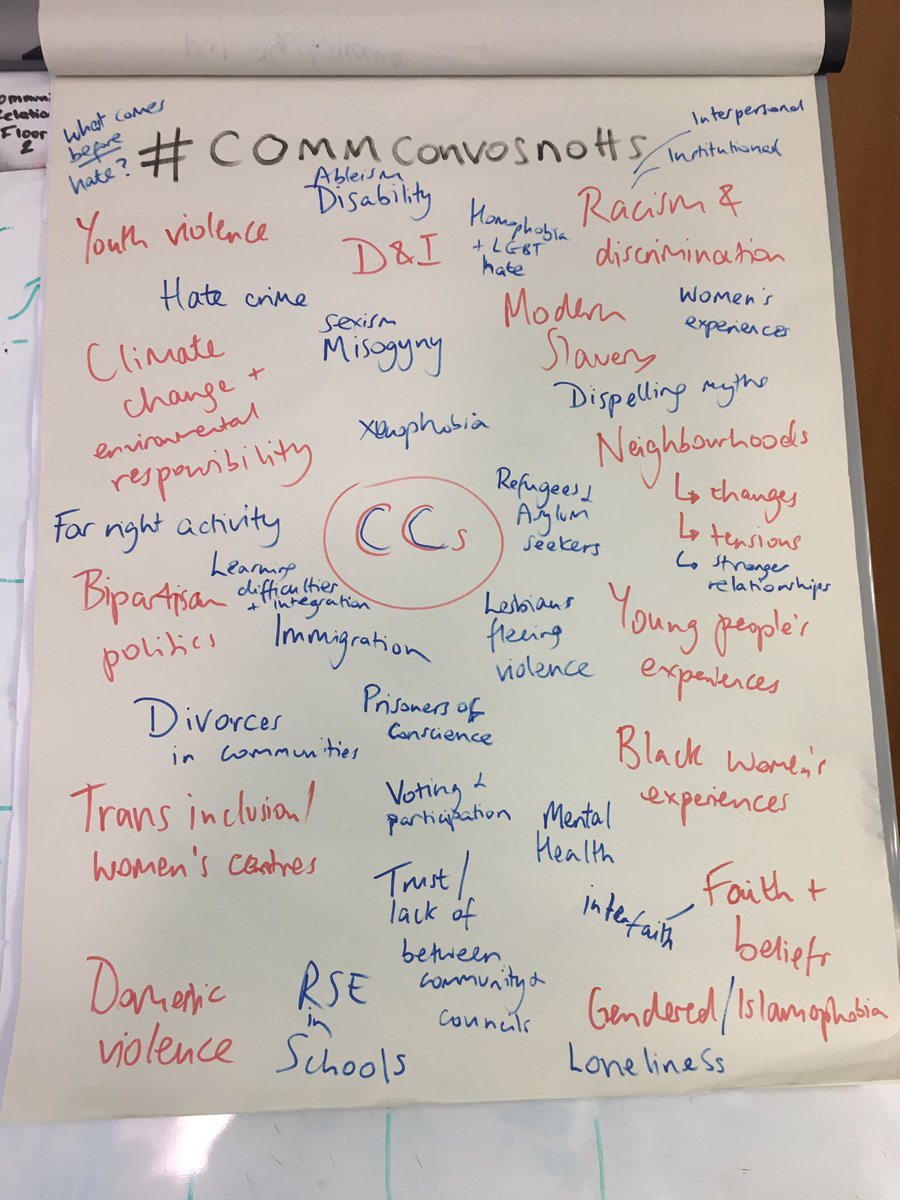 Floor
2
What comes
before
hate?
#COMMConvosnotts
Interpersonal
Institutional
Ableism
Disability
Youth violence
D&I
Homophobia
+ LGBT
hate
Racism &
discrimination
Hate crime
Sexism
Misogyny
Modern
Slavery
Women's
experiences
Climate
change +
environmental
responsibility
Xenophobia
Dispelling myths
Neighbourhoods
↳ changes
↳ tensions
↳ stronger
relationships
Far right activity
CCs
Refugees &
Asylum
seekers
Bipartisan
politics
Learning
difficulties
+ integration
Immigration
Lesbians
fleeing
violence
Young people's
experiences
Divorces
in communities
Prisoners of
Conscience
Black women's
experiences
Trans inclusion/
women's centres
Voting &
participation
Mental
Health
Trust/
lack of
between
community &
councils
interfaith
Faith +
beliefs
Domestic
violence
RSE
in
Schools
Gendered/Islamophobia
Loneliness